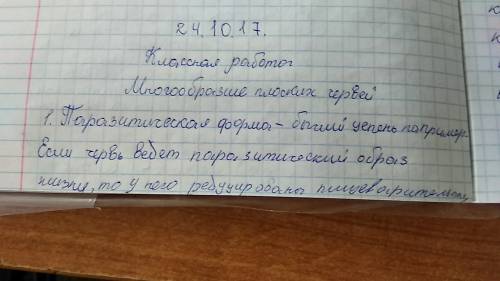 24.10.17.
Классная работа
Многообразие плоских червей
1. Паразитическая форма - бычий цепень например.
Если червь ведет паразитический образ
жизни, то у него редуцирована пищеварительн